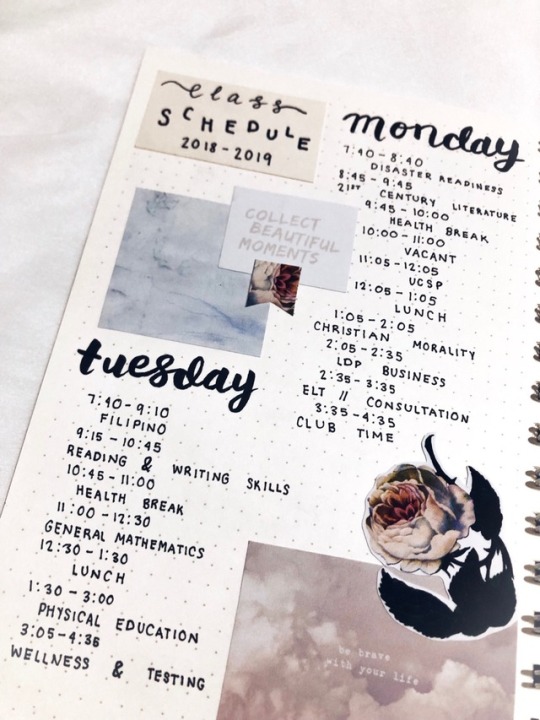 class
SCHEDULE
2018-2019
COLLECT
BEAUTIFUL
MOMENTS
monday
7:40-8:40
DISASTER READINESS
8:45-9:45
21ST CENTURY LITERATURE
9:45-10:00
HEALTH BREAK
10:00-11:00
VACANT
11:05-12:05
UCSP
12:05-1:05
LUNCH
1:05-2:05
CHRISTIAN MORALITY
2:05-2:35
LDP BUSINESS
2:35-3:35
ELT // CONSULTATION
3:35-4:35
CLUB TIME
tuesday
7:40-9:10
FILIPINO
9:15-10:45
READING & WRITING SKILLS
10:45-11:00
HEALTH BREAK
11:00-12:30
GENERAL MATHEMATICS
12:30-1:30
LUNCH
1:30-3:00
PHYSICAL EDUCATION
3:05-4:35
WELLNESS & TESTING
be brave
with your life